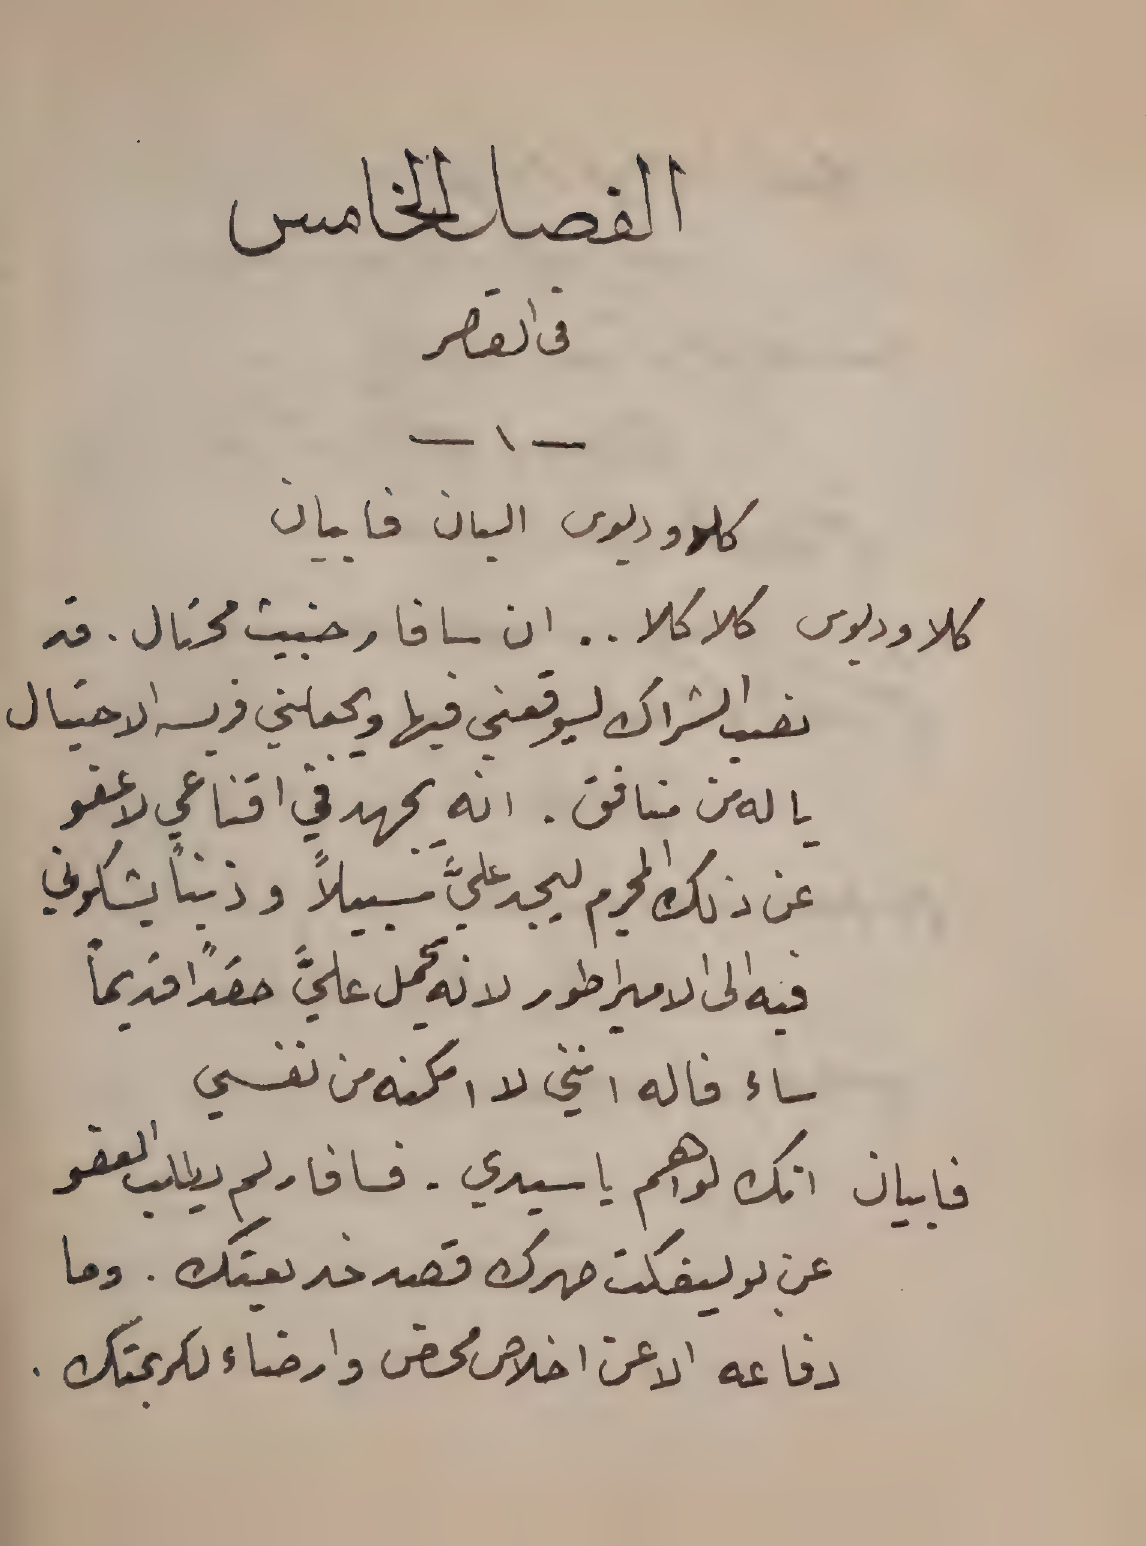 الفصل الخامس
في القصر
— ١ —
كلاوديوس البان فابيان
كلاوديوس كلا كلا .. ان سافار خبيث محتال . قد
نصب الشراك ليوقعني فيها ويجعلني فريسه الاحتيال
يا له من منافق . انه يجهد في اقناعي لاعفو
عن ذلك المجرم ليجد عليَّ سبيلاً وذنباً يشكوني
فيه الى الامبراطور لانه يحمل عليَّ حقدًا قديماً
ساء فاله انني لا امكنه من نفسي
فابيان انك لواهم يا سيدي . فسافار لم يطلب العفو
عن بوليفكت صهرك قصد خديعتك . وما
دفاعه الا عن اخلاص محض وارضاء لكريمتك .